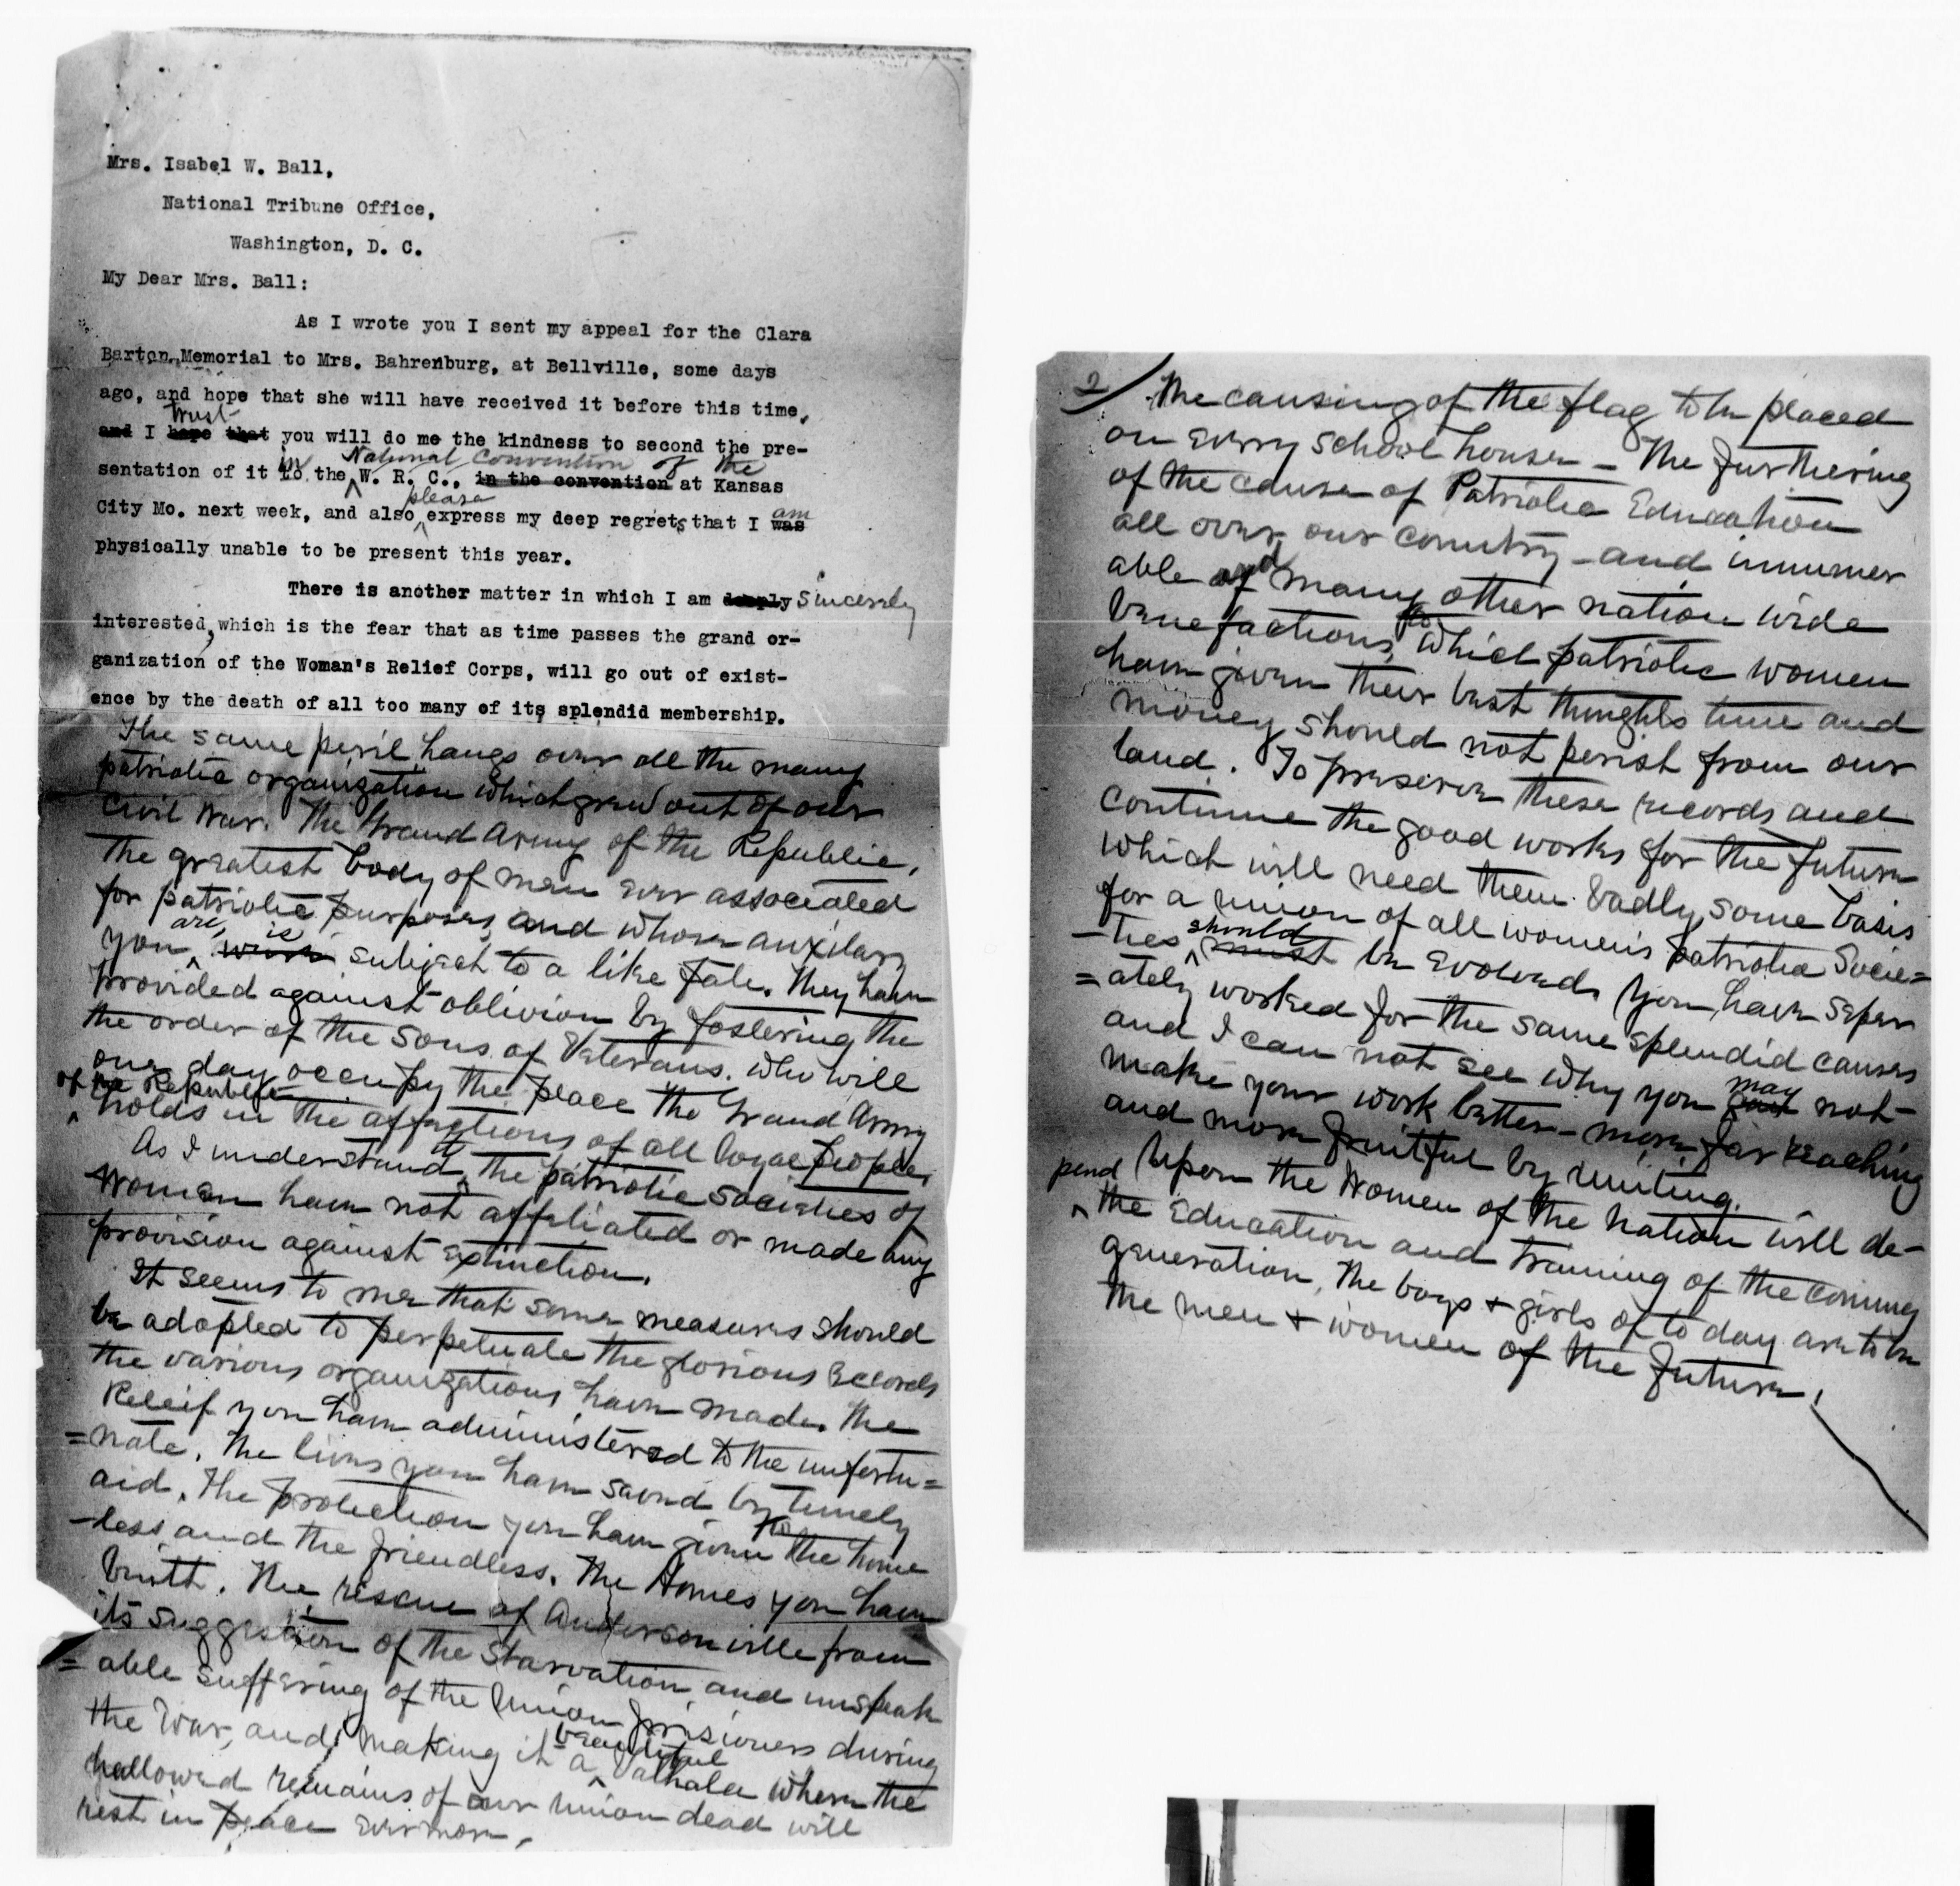 Mrs. Isabel W. Ball,
National Tribune Office,
Washington, D. C.
My Dear Mrs. Ball:
As I wrote you I sent my appeal for the Clara
Barton Memorial to Mrs. Bahrenburg, at Bellville, some days
ago, and hope that she will have received it before this time,
trust
and I hope that you will do me the kindness to second the pre-
in National Convention of the
sentation of it to the W. R. C., in the convention at Kansas
please am
City Mo. next week, and also express my deep regrets that I was
physically unable to be present this year.
There is another matter in which I am deeply Sincerely
interested, which is the fear that as time passes the grand or-
ganization of the Woman's Relief Corps, will go out of exist-
ence by the death of all too many of its splendid membership.
The same peril hangs over all the many
patriotic organization which grew out of our
Civil War. The Grand Army of the Republic,
the greatest body of men ever associated
for patriotic purposes, and whose auxilary
are, is
you were subject to a like fate. They have
provided against oblivion by fostering the
the order of the Sons of Veterans. who will
one day occupy the place the Grand Army
of the Republic
holds in the affections of all loyal people,
As I understand it, the patriotic societies of
Women have not affiliated or made any
provision against extinction.
It seems to me that some measures should
be adopted to perpetuate the glorious records
the various organizations have made. The
Releif you have administered to the unfortu=
=nate. The lives you have saved by timely
aid. The protection you have given to the home
-less and the friendless. The Homes you have
built. The rescue of Andersonville from
its suggestion of the starvation and unspeak
=able suffering of the Union Prisioners during
beautiful
the War, and making it a Valhalla where the
hallowed remains of our Union dead will
rest in peace evermore,
2 The causing of the flag to be placed
on every school house - The furthering
of the cause of Patriotic Education
all over our country - and innumer
able and many other nation wide
benefactions, to which patriotic women
have given their best thoughts time and
money should not perish from our
land. To preserve these records and
continue the good works for the future
which will need them badly, some basis
for a union of all women's patriotic Socie=
should
-ties must be evolved. You have seper
=ately worked for the same splendid causes
and I can not see why you
may
not
make your work better - more far reaching
and more fruitful by uniting.
Upon the Women of the Nation will de-
pend
the education and training of the coming
generation, The boys & girls of to day are to be
the men & women of the future.